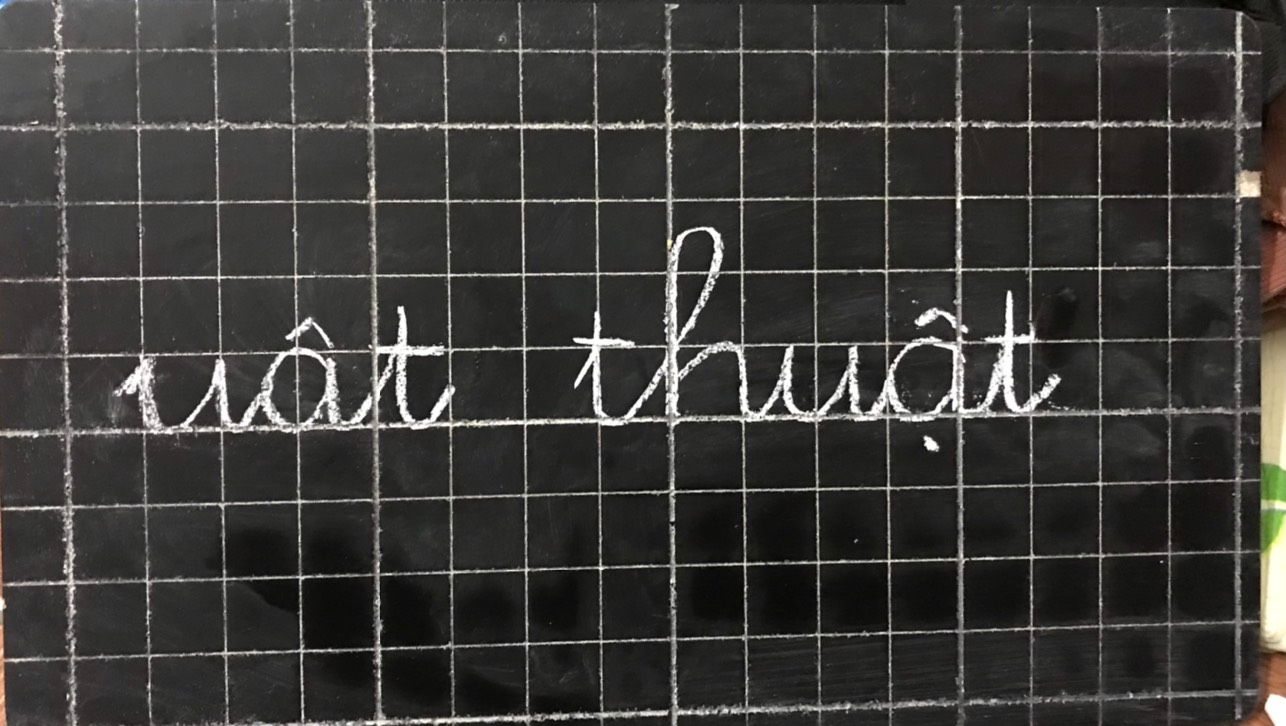 uât thuật